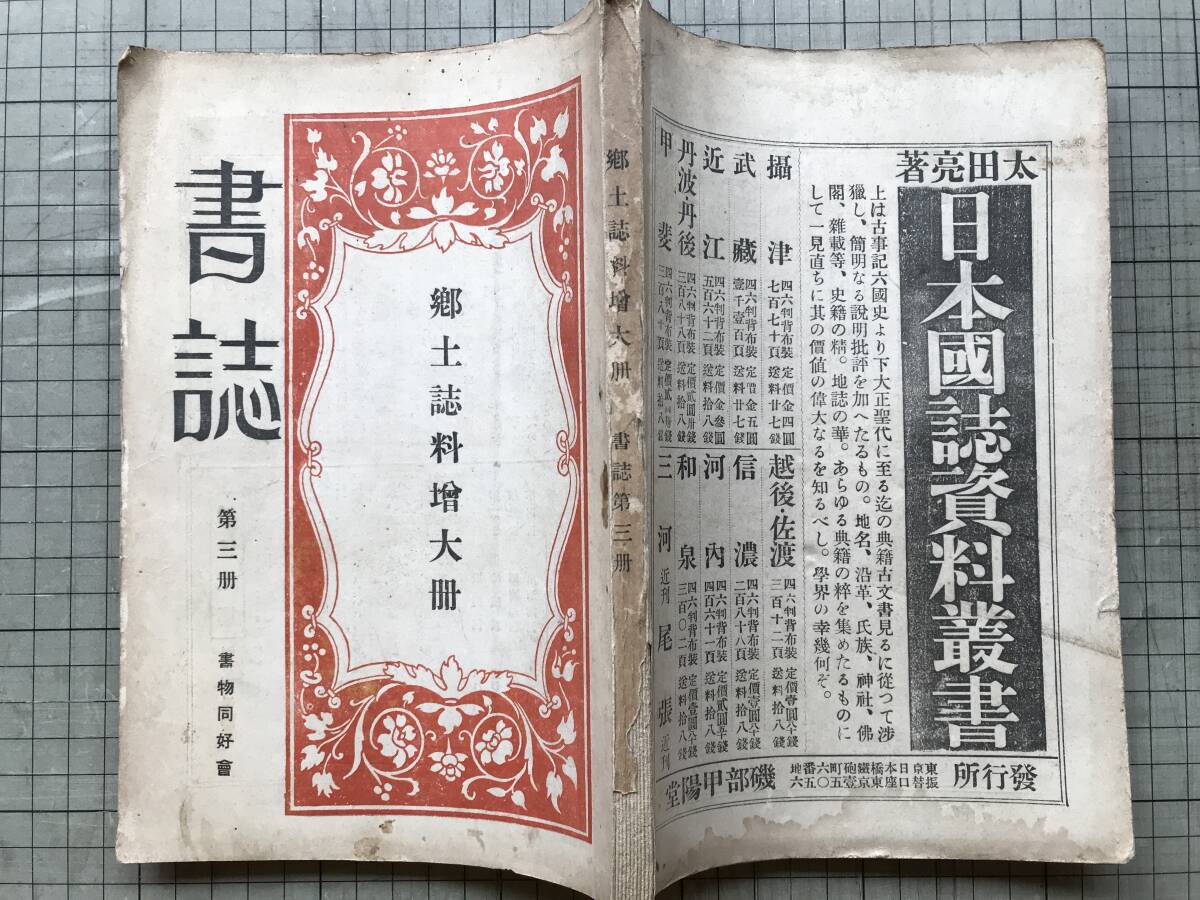 書誌
第三册
書物同好會
郷土誌料增大册
郷土誌料增大册 書誌第三册
太田亮著
日本國誌資料叢書
上は古事記六國史より下大正聖代に至る迄の典籍古文書見るに從つて涉
獵し、簡明なる說明批評を加へたるもの。地名、沿革、氏族、神社、佛
閣、雜載等、史籍の精。地誌の華。あらゆる典籍の粹を集めたるものに
して一見直ちに其の價値の偉大なるを知るべし。學界の幸幾何ぞ。
攝津 四六判背布裝 七百七十頁 定價金四圓 送料廿七錢
武藏 四六判背布裝 壹千壹百頁 定價金五圓 送料廿七錢
近江 四六判背布裝 五百六十二頁 定價金參圓 送料拾八錢
丹波・丹後 四六判背布裝 三百八十八頁 定價貳圓卅錢 送料拾八錢
甲斐 四六判背布裝 三百八十頁 定價貳圓 送料拾八錢
越後・佐渡 四六判背布裝 三百十二頁 定價壹圓八十錢 送料拾八錢
信濃 四六判背布裝 二百八十八頁 定價壹圓八十錢 送料拾八錢
河內 四六判背布裝 四百六十一頁 定價貳圓五十錢 送料拾八錢
和泉 四六判背布裝 三百〇二頁 定價壹圓八十錢 送料拾八錢
三河 近刊 尾張 近刊
發行所 東京日本橋鐵砲町六番地 振替口座東京壹五〇五六 磯部甲陽堂